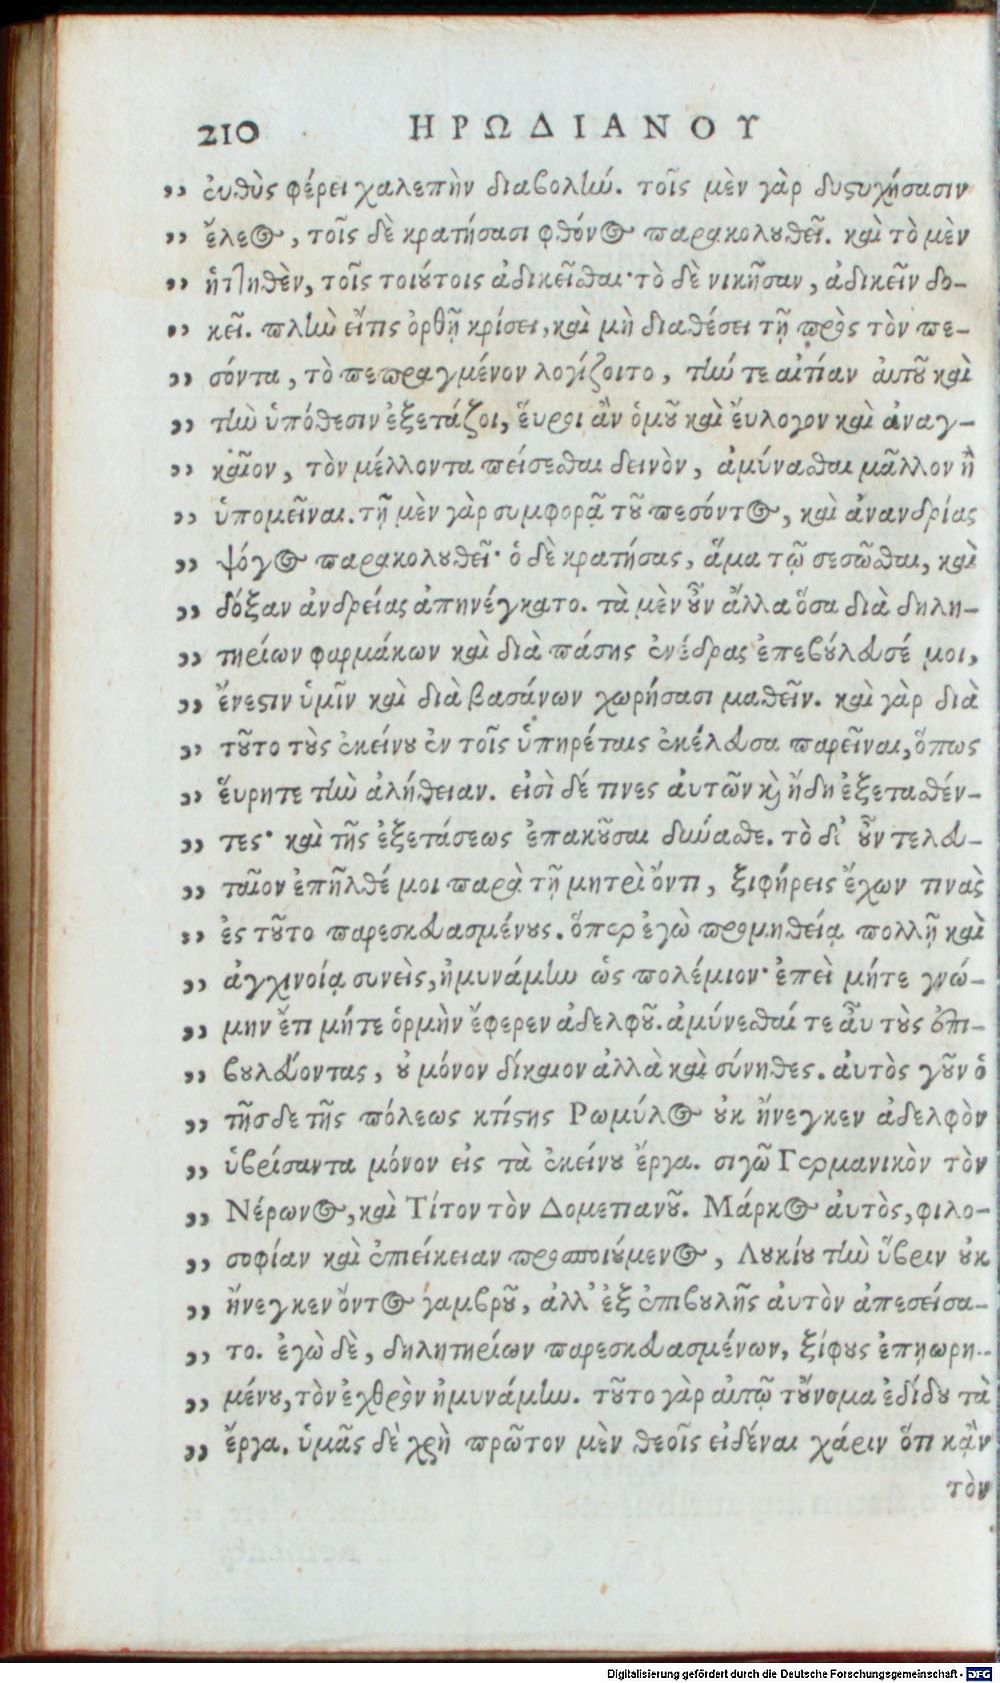 210 ΗΡΩΔΙΑΝΟΥ
,, εὐθὺς φέρει χαλεπὴν διαβολὴν. τοῖς μὲν γὰρ δυςυχήσασιν
,, ἔλεος, τοῖς δὲ κρατήσασι φθόνος παρακολουθεῖ. καὶ τὸ μὲν
,, ἡττηθὲν, τοῖς τοιούτοις ἀδικεῖσθαι· τὸ δὲ νικῆσαν, ἀδικεῖν δο-
,, κεῖ. πλὴν εἴτις ὀρθῇ κρίσει, καὶ μὴ διαθέσει τῇ πρὸς τὸν πε-
,, σόντα, τὸ πεπραγμένον λογίζοιτο, τήν τε αἰτίαν αὐτοῦ καὶ
,, τὴν ὑπόθεσιν ἐξετάζοι, ἕυροι ἂν ὁμοῦ καὶ ἔυλογον καὶ ἀναγ-
,, καῖον, τὸν μέλλοντα πείσεσθαι δεινὸν, ἀμύνασθαι μᾶλλον ἢ
,, ὑπομεῖναι. τῇ μὲν γὰρ συμφορᾷ τοῦ πεσόντος, καὶ ἀνανδρίας
,, ψόγος παρακολουθεῖ· ὁ δὲ κρατήσας, ἅμα τῷ σεσῶσθαι, καὶ
,, δόξαν ἀνδρείας ἀπηνέγκατο. τὰ μὲν οὖν ἄλλα ὅσα διὰ δηλη-
,, τηρίων φαρμάκων καὶ διὰ πάσης ἐνέδρας ἐπεβούλευσέ μοι,
,, ἔνεςιν ὑμῖν καὶ διὰ βασάνων χωρήσασι μαθεῖν. καὶ γὰρ διὰ
,, τοῦτο τοὺς ἐκείνου ἐν τοῖς ὑπηρέταις ἐκέλευσα παρεῖναι, ὅπως
,, ἕυρητε τὴν ἀλήθειαν. εἰσὶ δέ τινες αὐτῶν καὶ ἤδη ἐξετασθέν-
,, τες· καὶ τῆς ἐξετάσεως ἐπακοῦσαι δύνασθε. τὸ δ' οὖν τελευ-
,, ταῖον ἐπῆλθέ μοι παρὰ τῇ μητρὶ ὄντι, ξιφήρεις ἔχων τινὰς
,, ἐς τοῦτο παρεσκευασμένους. ὅπερ ἐγὼ προμηθείᾳ πολλῇ καὶ
,, ἀγχινοίᾳ συνεὶς, ἠμυνάμην ὡς πολέμιον· ἐπεὶ μήτε γνώ-
,, μην ἔτι μήτε ὁρμὴν ἔφερεν ἀδελφοῦ. ἀμύνεσθαί τε αὖ τοὺς ἐπι-
,, βουλεύοντας, οὐ μόνον δίκαιον ἀλλὰ καὶ σύνηθες. αὐτὸς γοῦν ὁ
,, τῆσδε τῆς πόλεως κτίςης Ρωμύλος οὐκ ἤνεγκεν ἀδελφὸν
,, ὑβρίσαντα μόνον εἰς τὰ ἐκείνου ἔργα. σιγῶ Γερμανικὸν τὸν
,, Νέρωνος, καὶ Τίτον τὸν Δομετιανοῦ. Μάρκος αὐτὸς, φιλο-
,, σοφίαν καὶ ἐπιείκειαν προσποιούμενος, Λουκίου τὴν ὕβριν οὐκ
,, ἤνεγκεν ὄντος γαμβροῦ, ἀλλ' ἐξ ἐπιβουλῆς αὐτὸν ἀπεσείσα-
,, το. ἐγὼ δὲ, δηλητηρίων παρεσκευασμένων, ξίφους ἐπῃωρη-
,, μένου, τὸν ἐχθρὸν ἠμυνάμην. τοῦτο γὰρ αὐτῷ τοὔνομα ἐδίδου τὰ
,, ἔργα. ὑμᾶς δὲ χρὴ πρῶτον μὲν θεοῖς εἰδέναι χάριν ὅτι κᾂν
τὸν
Digitalisierung gefördert durch die Deutsche Forschungsgemeinschaft - DFG